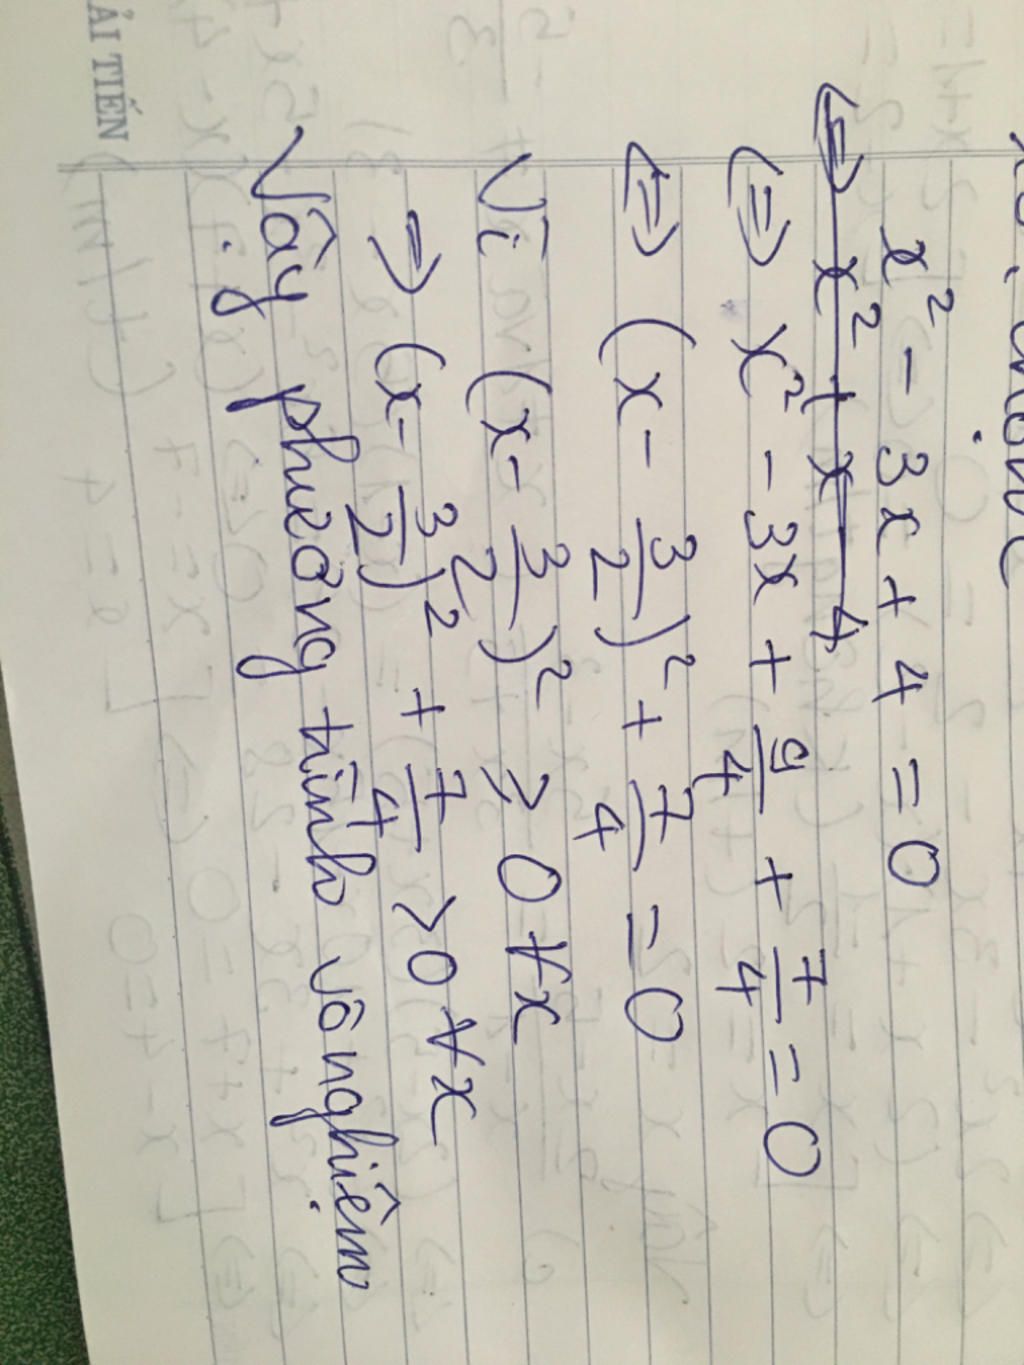 x² - 3x + 4 = 0
⇔ x² + x 4
⇔ x² - 3x + 9/4 + 7/4 = 0
⇔ (x - 3/2)² + 7/4 = 0
Vì (x - 3/2)² ≥ 0 ∀x
⇒ (x - 3/2)² + 7/4 > 0 ∀x
Vậy phương trình vô nghiệm
ẢI TIẾN